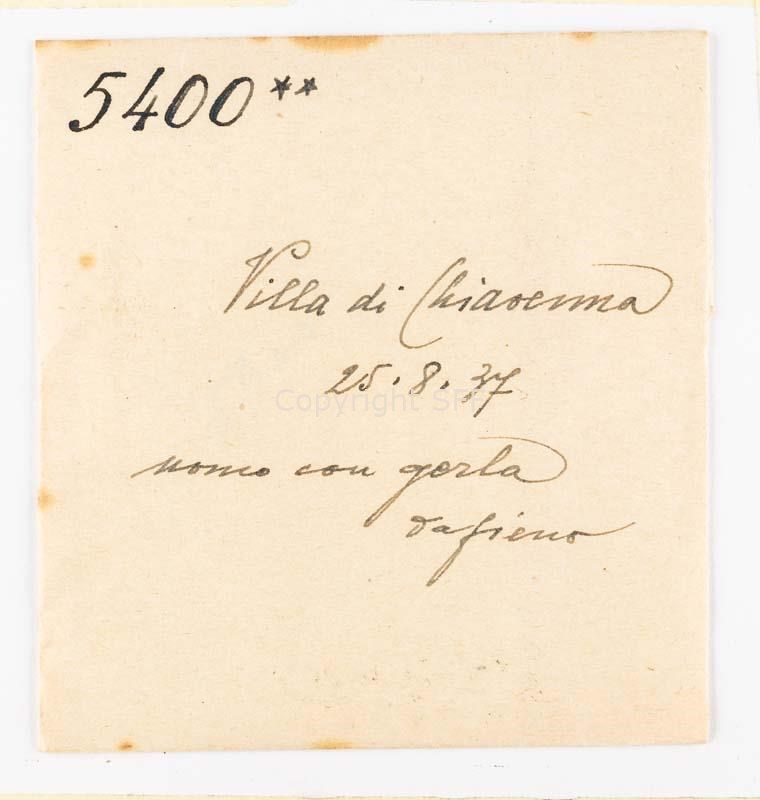 5400**
Villa di Chiavenna
25.8.37
Copyright SFE
uomo con gerla
da fieno